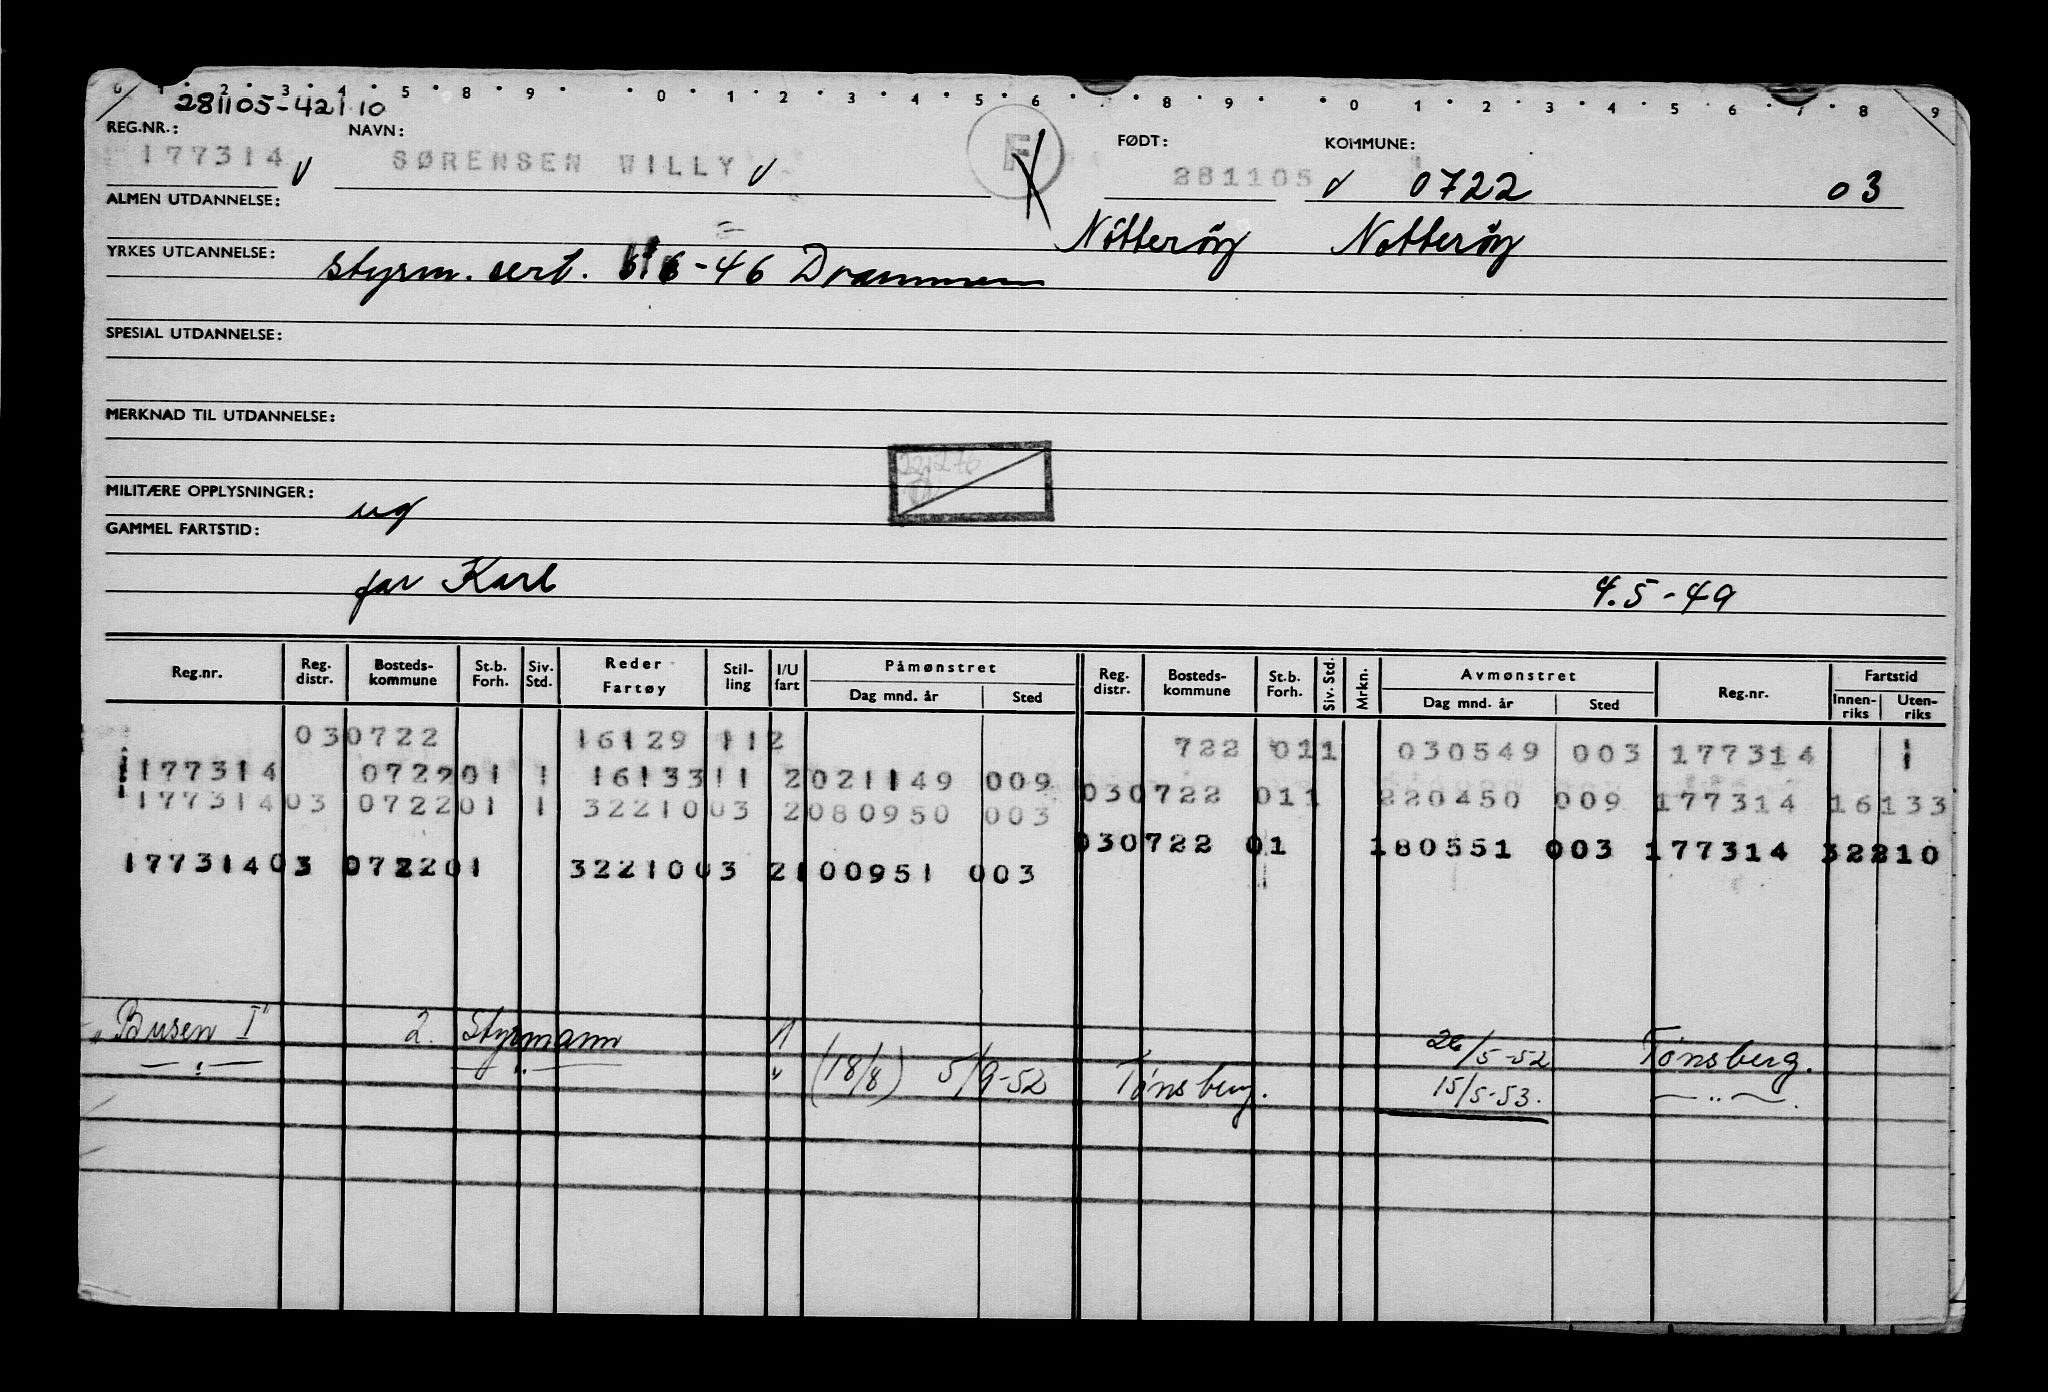 0 1 2 3 4 5 8 9 0 1 2 3 4 5 6 8 9 0 1 2 3 4 5 6 7 8 9
281105-42110
REG.NR.: NAVN: FØDT: KOMMUNE:
177314 v SØRENSEN WILLY v F 281105 v 0722 03
ALMEN UTDANNELSE:
Nötterøy Notterøy
YRKES UTDANNELSE: styrm. sert. 6-46 Drammen
SPESIAL UTDANNELSE:
MERKNAD TIL UTDANNELSE:
MILITÆRE OPPLYSNINGER: ug
GAMMEL FARTSTID:
far Karl 4.5-49
Reg.nr. Reg. distr. Bosteds-kommune St.b. Forh. Siv. Std. Reder Fartøy Stil-ling I/U fart Påmønstret Dag mnd. år Sted Reg. distr. Bosteds-kommune St.b. Forh. Siv. Std. Mrkn. Avmønstret Dag mnd. år Sted Reg.nr. Fartstid Innen-riks Uten-riks
030722 16129 112 722 011 030549 003 177314 1
177314 072201 1 16133 11 2 021149 009 030722 011 220450 009 177314 16133
177314 03 072201 1 32210 03 2 080950 003 030722 01 180551 003 177314 32210
177314 03 072201 32210 03 2 100951 003
"Busen I" 2. Styrmann 26/5-52 Tønsberg.
— " — — " — " (18/8) 5/9-52 Tønsberg. 15/5-53. — " —.